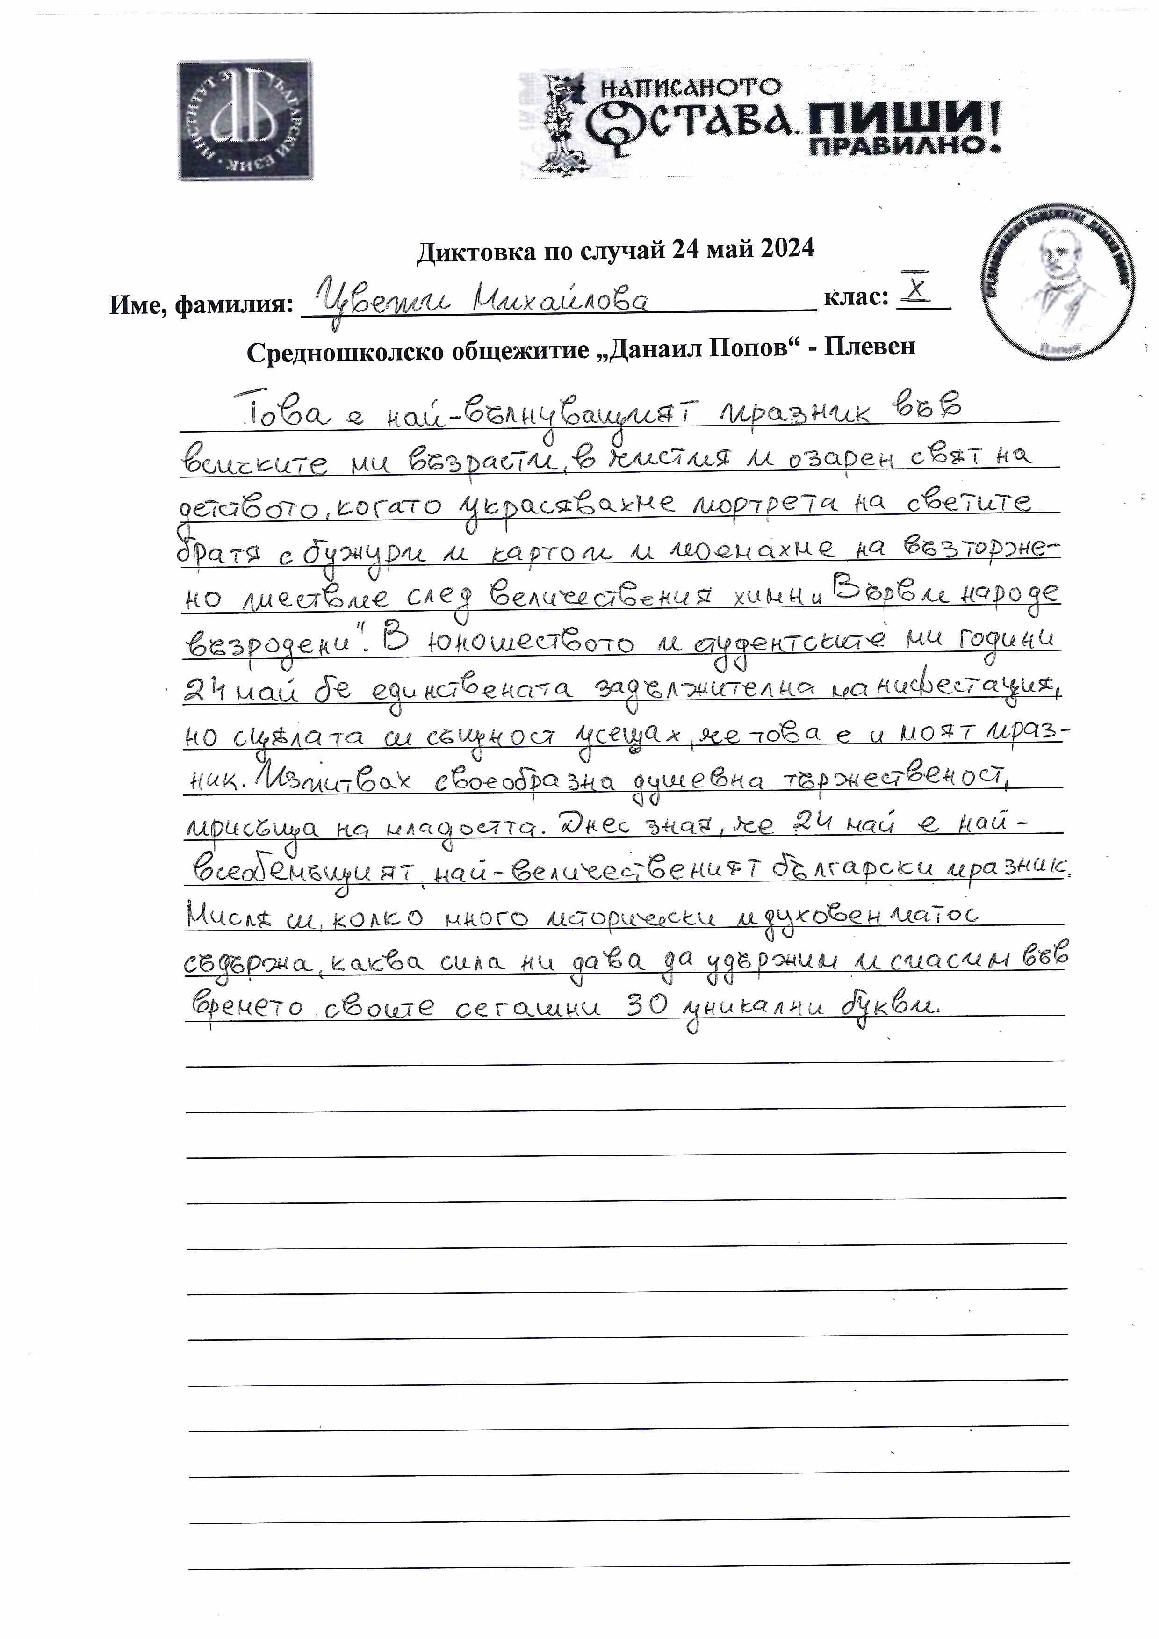 ИНСТИТУТ ЗА БЪЛГАРСКИ ЕЗИК
НАПИСАНОТО
ОСТАВА. ПИШИ!
ПРАВИЛНО.
Диктовка по случай 24 май 2024
Име, фамилия: Цвети Михайлова клас: X
Средношколско общежитие „Данаил Попов“ - Плевен
Това е най-вълнуващият празник във
всиските ми възрасти, в чистия и озарен свят на
детството, когато украсявахме портрета на светите
братя с бужури и картоли и поемахме на възторже-
но шествие след величествения химн и Върви народе
възродени". В юношеството и студентските ми години
24 май бе единствената задължителна манифестация,
но сцялата си същност усещах, че това е и моят праз-
ник. Изпитвах своеобразна душевна тържественост,
присъща на младостта. Днес зная, че 24 май е най-
всеобемъщият, най-величественият български празник.
Мисля си, колко много исторически и духовен патос
съдържа, каква сила ни дава да удържим и спасим във
времето своите сегашни 30 уникални букви.